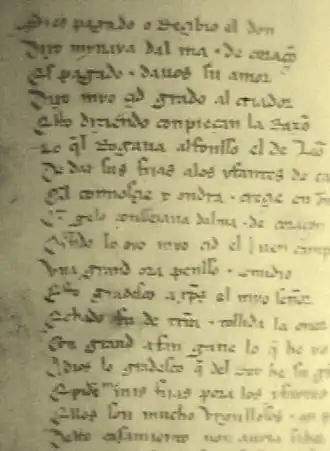 pagado o Reçibio el don
Dixo mynaya dalma & de coraçon
Es pagado & davos su amor
Dixo myo çid grado al criador
Esto diziendo conpieçan la Razon
Lo ql Rogava alfonsso el de Leo
De dar sus fijas alos yfantes de ca
Qel connosçie y ondra & creçie en
gelo conseiava dalma & de coraçon
Quando lo oyo myo çid el buen camp
Una grand ora pensso & comidio
Esto gradesco a xps el myo señor
Echado fu de tierra & tollida la onor
Con grand afan gane lo q he yo
A dios lo gradesco q del Rey he su
E piden mis fijas pora los yfantes
Ellos son mucho Urgullosos & an
Deste casamiento non avria sabor